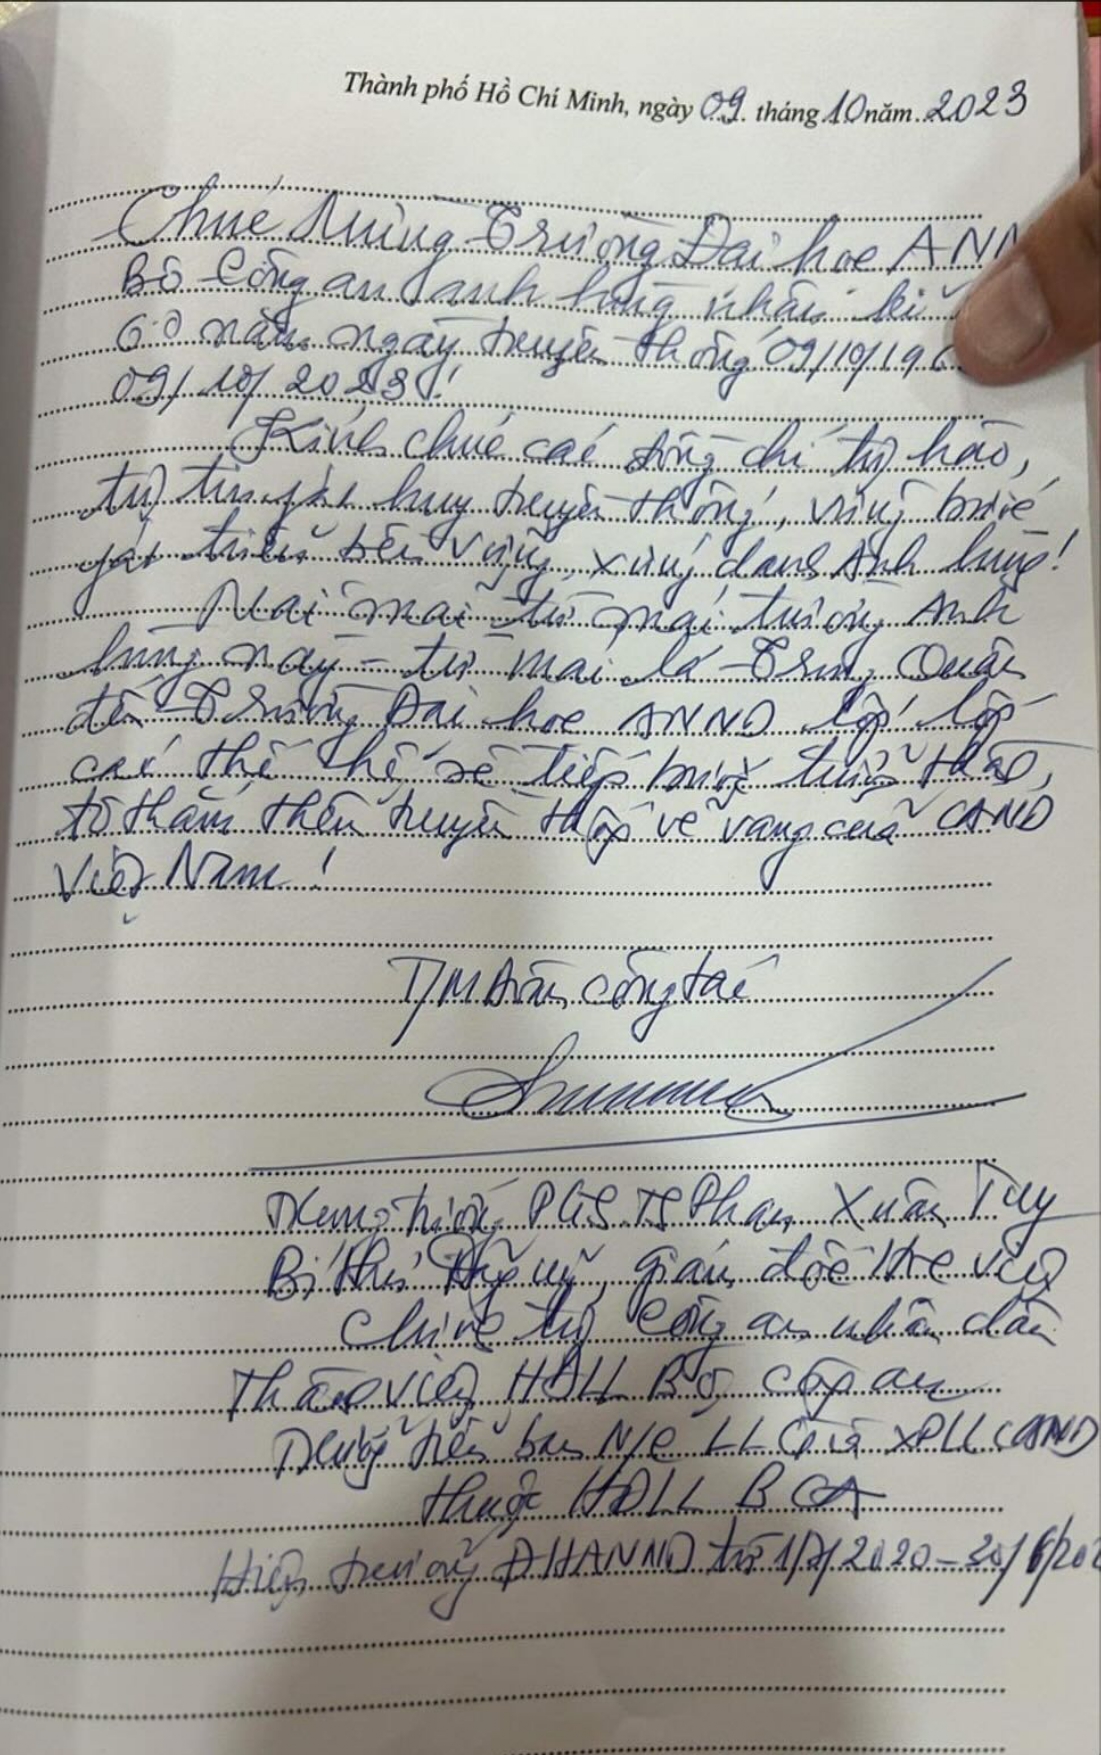 Thành phố Hồ Chí Minh, ngày 09 tháng 10 năm 2023
Chúc Mừng Trường Đại học ANN
Bộ Công an anh hùng nhân kỉ
60 năm ngày truyền thống 09/10/196
09/10/2023!
Kính chúc các đồng chí tự hào,
tự tin phát huy truyền thống, vững bước
phát triển bền vững, xứng danh Anh hùng!
Mai mãi từ mái trường Anh
hùng này - từ mái lá Trung Quân
đến Trường Đại học ANND lớp lớp
các thế hệ sẽ tiếp bước
tô thắm thêm truyền thống vẻ vang của CAND
Việt Nam!
T/M Đoàn công tác
Trung tướng PGS TS Phan Xuân Tuy
Bí thư Đảng uỷ, giám đốc Học viện
Chính trị Công an nhân dân
Thành viên HĐLL Bộ công an
Trưởng tiểu ban N/c LL XDLL CAND
thuộc HĐLL BCA
Hiệu trưởng ĐHANND từ 1/7/2020 - 30/6/202